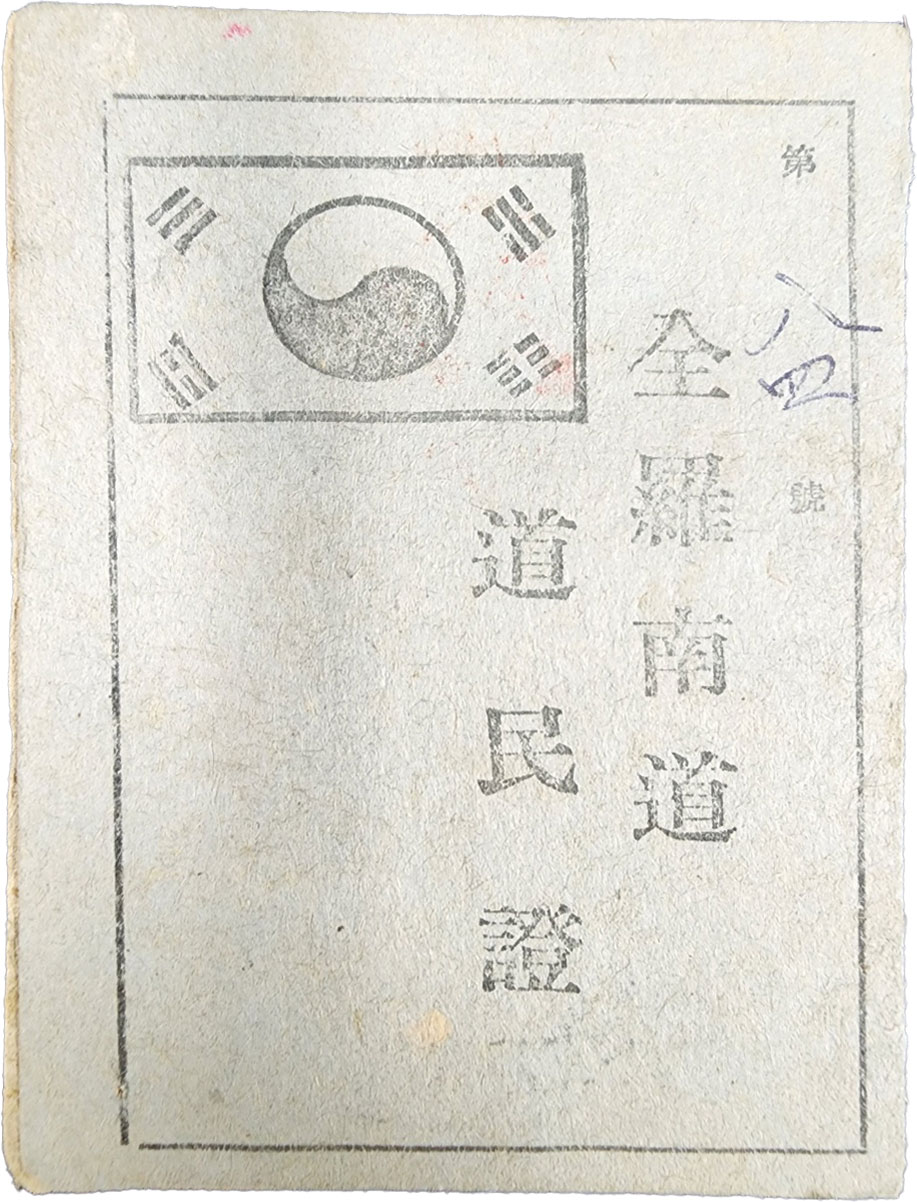 第八四號
全羅南道
道民證